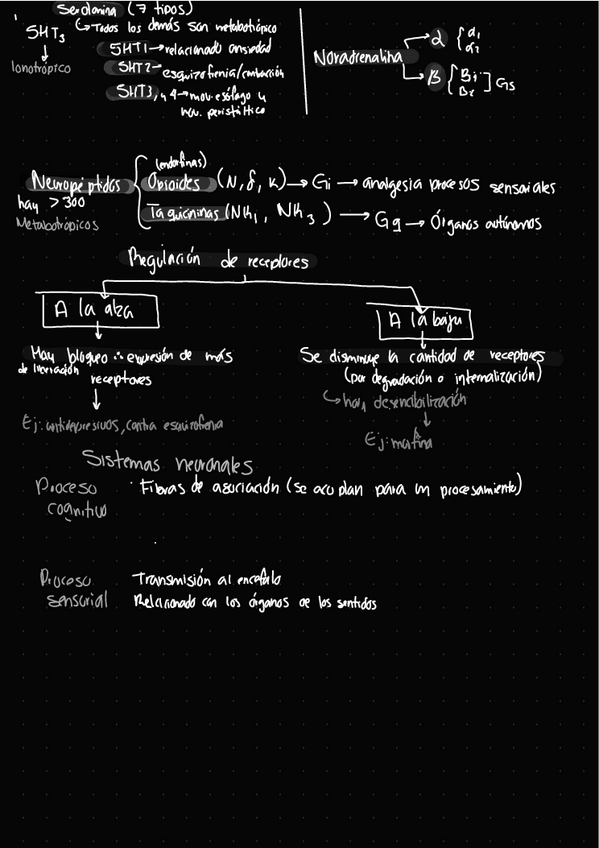 Serotonina (7 tipos)
5HT3
↳ Todos los demás son metabotrópico
Ionotrópico
5HT1 → relacionado ansiedad
5HT2 → esquizofrenia/
5HT3, y 4 → mov. esófago y
mov. peristáltico
Noradrenalina
α { α1
α2
B { B1
B2 ] Gs
(endorfinas)
Neuropéptidos { Opioides (N, δ, K) → Gi → analgesia procesos sensoriales
hay > 300
Taquicininas (NK1, NK3) → Gq → Órganos autónomos
Metabotrópicos
Regulación de receptores
A la alza
A la baja
Hay bloqueo ∴ expresión de más
de liberación receptores
Se disminuye la cantidad de receptores
(por degradación o internalización)
↳ hay desencibilización
Ej: antidepresivos, contra esquizofrenia
Ej: morfina
Sistemas neuronales
Proceso
cognitivo
· Fibras de asociación (se acoplan para un procesamiento)
Proceso
sensorial
Transmisión al encéfalo
Relacionado con los órganos de los sentidos